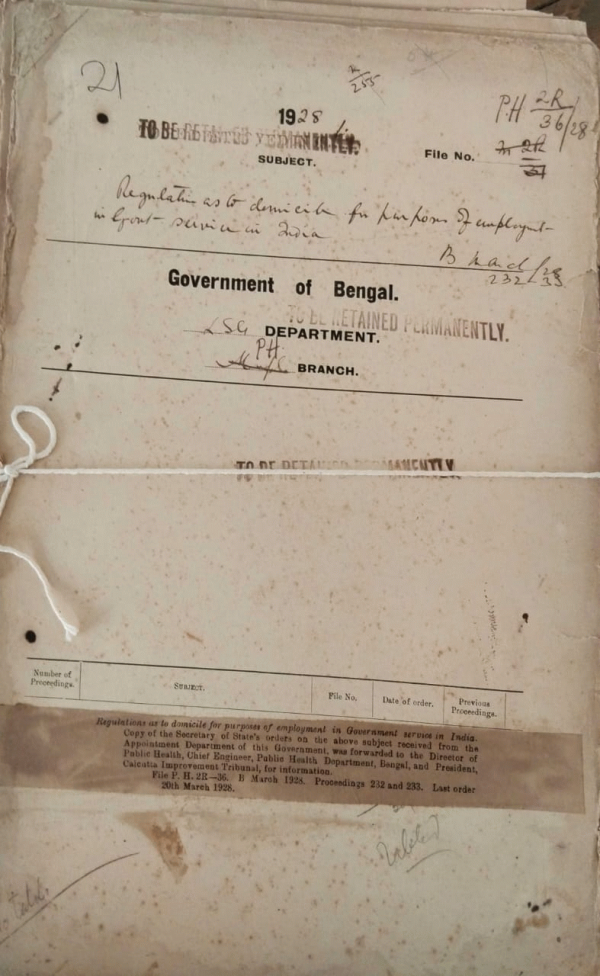 21
R/255
1928
PH 2R/36/28
TO BE RETAINED PERMANENTLY.
SUBJECT.
File No. 2R
Regulation as to domicile for purposes of employment
in Govt service in India
B March/28
232-33
Government of Bengal.
TO BE RETAINED PERMANENTLY.
LSG DEPARTMENT.
PH
BRANCH.
TO BE RETAINED PERMANENTLY.
Number of Proceedings. SUBJECT. File No. Date of order. Previous Proceedings.
Regulations as to domicile for purposes of employment in Government service in India.
Copy of the Secretary of State's orders on the above subject received from the
Appointment Department of this Government, was forwarded to the Director of
Public Health, Chief Engineer, Public Health Department, Bengal, and President,
Calcutta Improvement Tribunal, for information.
File P. H. 2R—36. B March 1928. Proceedings 232 and 233. Last order
20th March 1928.